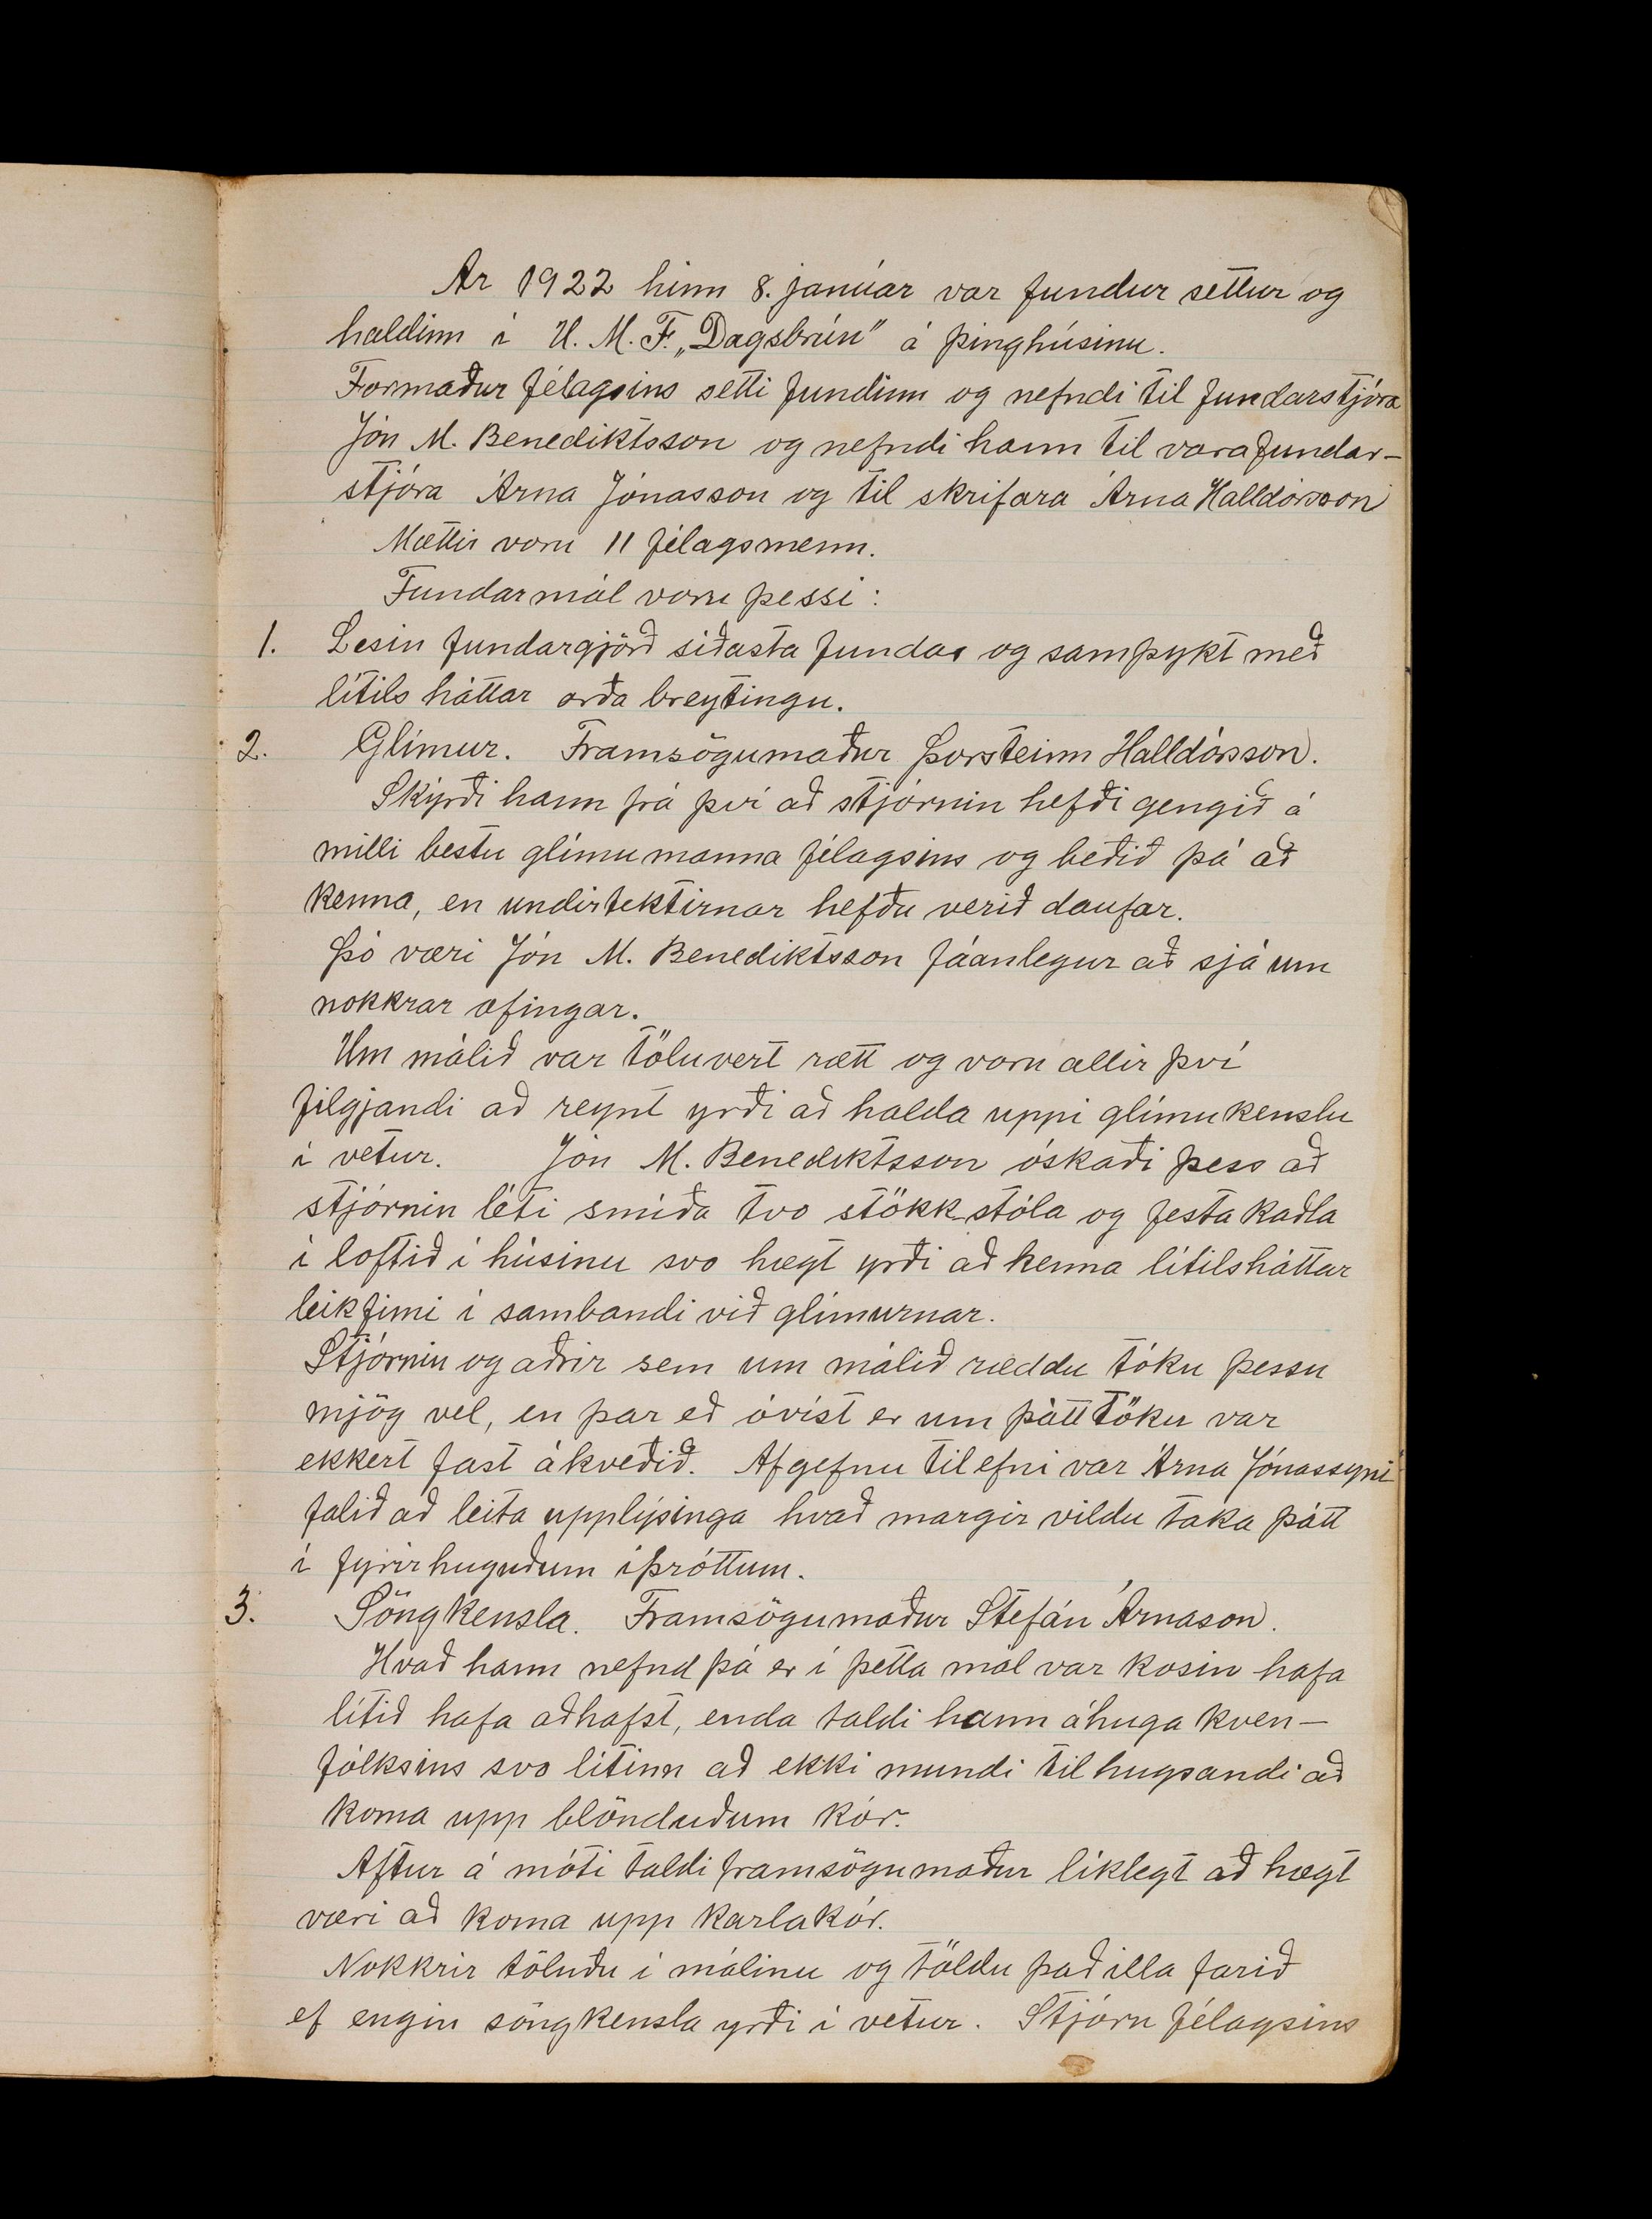 Ár 1922 hinn 8. janúar var fundur settur og
haldinn í U. M. F. „Dagsbrún" á þinghúsinu.
Formaður félagsins setti fundinn og nefndi til fundarstjóra
Jón M. Benediktsson og nefndi hann til varafundar-
stjóra Árna Jónasson og til skrifara Árna Halldórsson
Mættir voru 11 félagsmenn.
Fundarmál voru þessi:
1. Lesin fundargjörð síðasta fundar og samþykt með
lítils háttar orða breytingu.
2. Glímur. Framsögumaður Þorsteinn Halldórsson.
Skýrði hann frá því að stjórnin hefði gengið á
milli bestu glímumanna félagsins og beðið þá að
kenna, en undirtektirnar hefðu verið daufar.
Þó væri Jón M. Benediktsson fáanlegur að sjá um
nokkrar æfingar.
Um málið var töluvert rætt og voru allir því
filgjandi að reynt yrði að halda uppi glímukenslu
í vetur. Jón M. Benediktsson óskaði þess að
stjórnin léti smíða tvo stökk-stóla og festa kaðla
í loftið í húsinu svo hægt yrði að kenna lítilsháttar
leikfimi í sambandi við glímurnar.
Stjórnin og aðrir sem um málið ræddu tóku þessu
mjög vel, en þar eð óvíst er um þátttöku var
ekkert fast ákveðið. Afgefnu tilefni var Árna Jónassyni
falið að leita upplýsinga hvað margir vildu taka þátt
í fyrirhuguðum íþróttum.
3. Söngkensla. Framsögumaður Stefán Árnason.
Hvað hann nefnd þá er í þetta mál var kosin hafa
lítið hafa aðhafst, enda taldi hann áhuga kven-
fólksins svo lítinn að ekki mundi tilhugsandi að
koma upp blönduðum kór.
Aftur á móti taldi framsögumaður líklegt að hægt
væri að koma upp karlakór.
Nokkrir töluðu í málinu og töldu það illa farið
ef engin söngkensla yrði í vetur. Stjórn félagsins